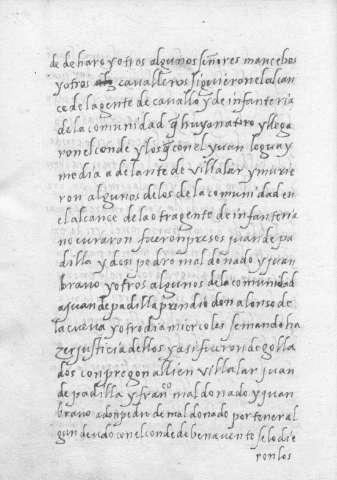 de de haro y otros algunos señores mancebos
y otros cavalleros siguieron el alcan
ce de la gente de cavallo y de infanteria
de la comunidad q huyo natro y llega
ron el conde y los q con el yvan legua y
media adelante de villalar y murie
ron algunos de los de la comunidad en
el alcance de la otra gente de infanteria
no curaron fueron presos juan de pa
dilla y don pedro maldonado y juan
bravo y otros algunos de la comunidad
a juan de padilla prendio don alonso de
la cueva y otro dia miercoles se mando ha
zer justicia dellos y asi fueron degolla
dos con pregon alli en villalar juan
de padilla y franco maldonado y juan
bravo a don pedro maldonado por tener al
gun deudo con el conde de benavente se lo die
ron los